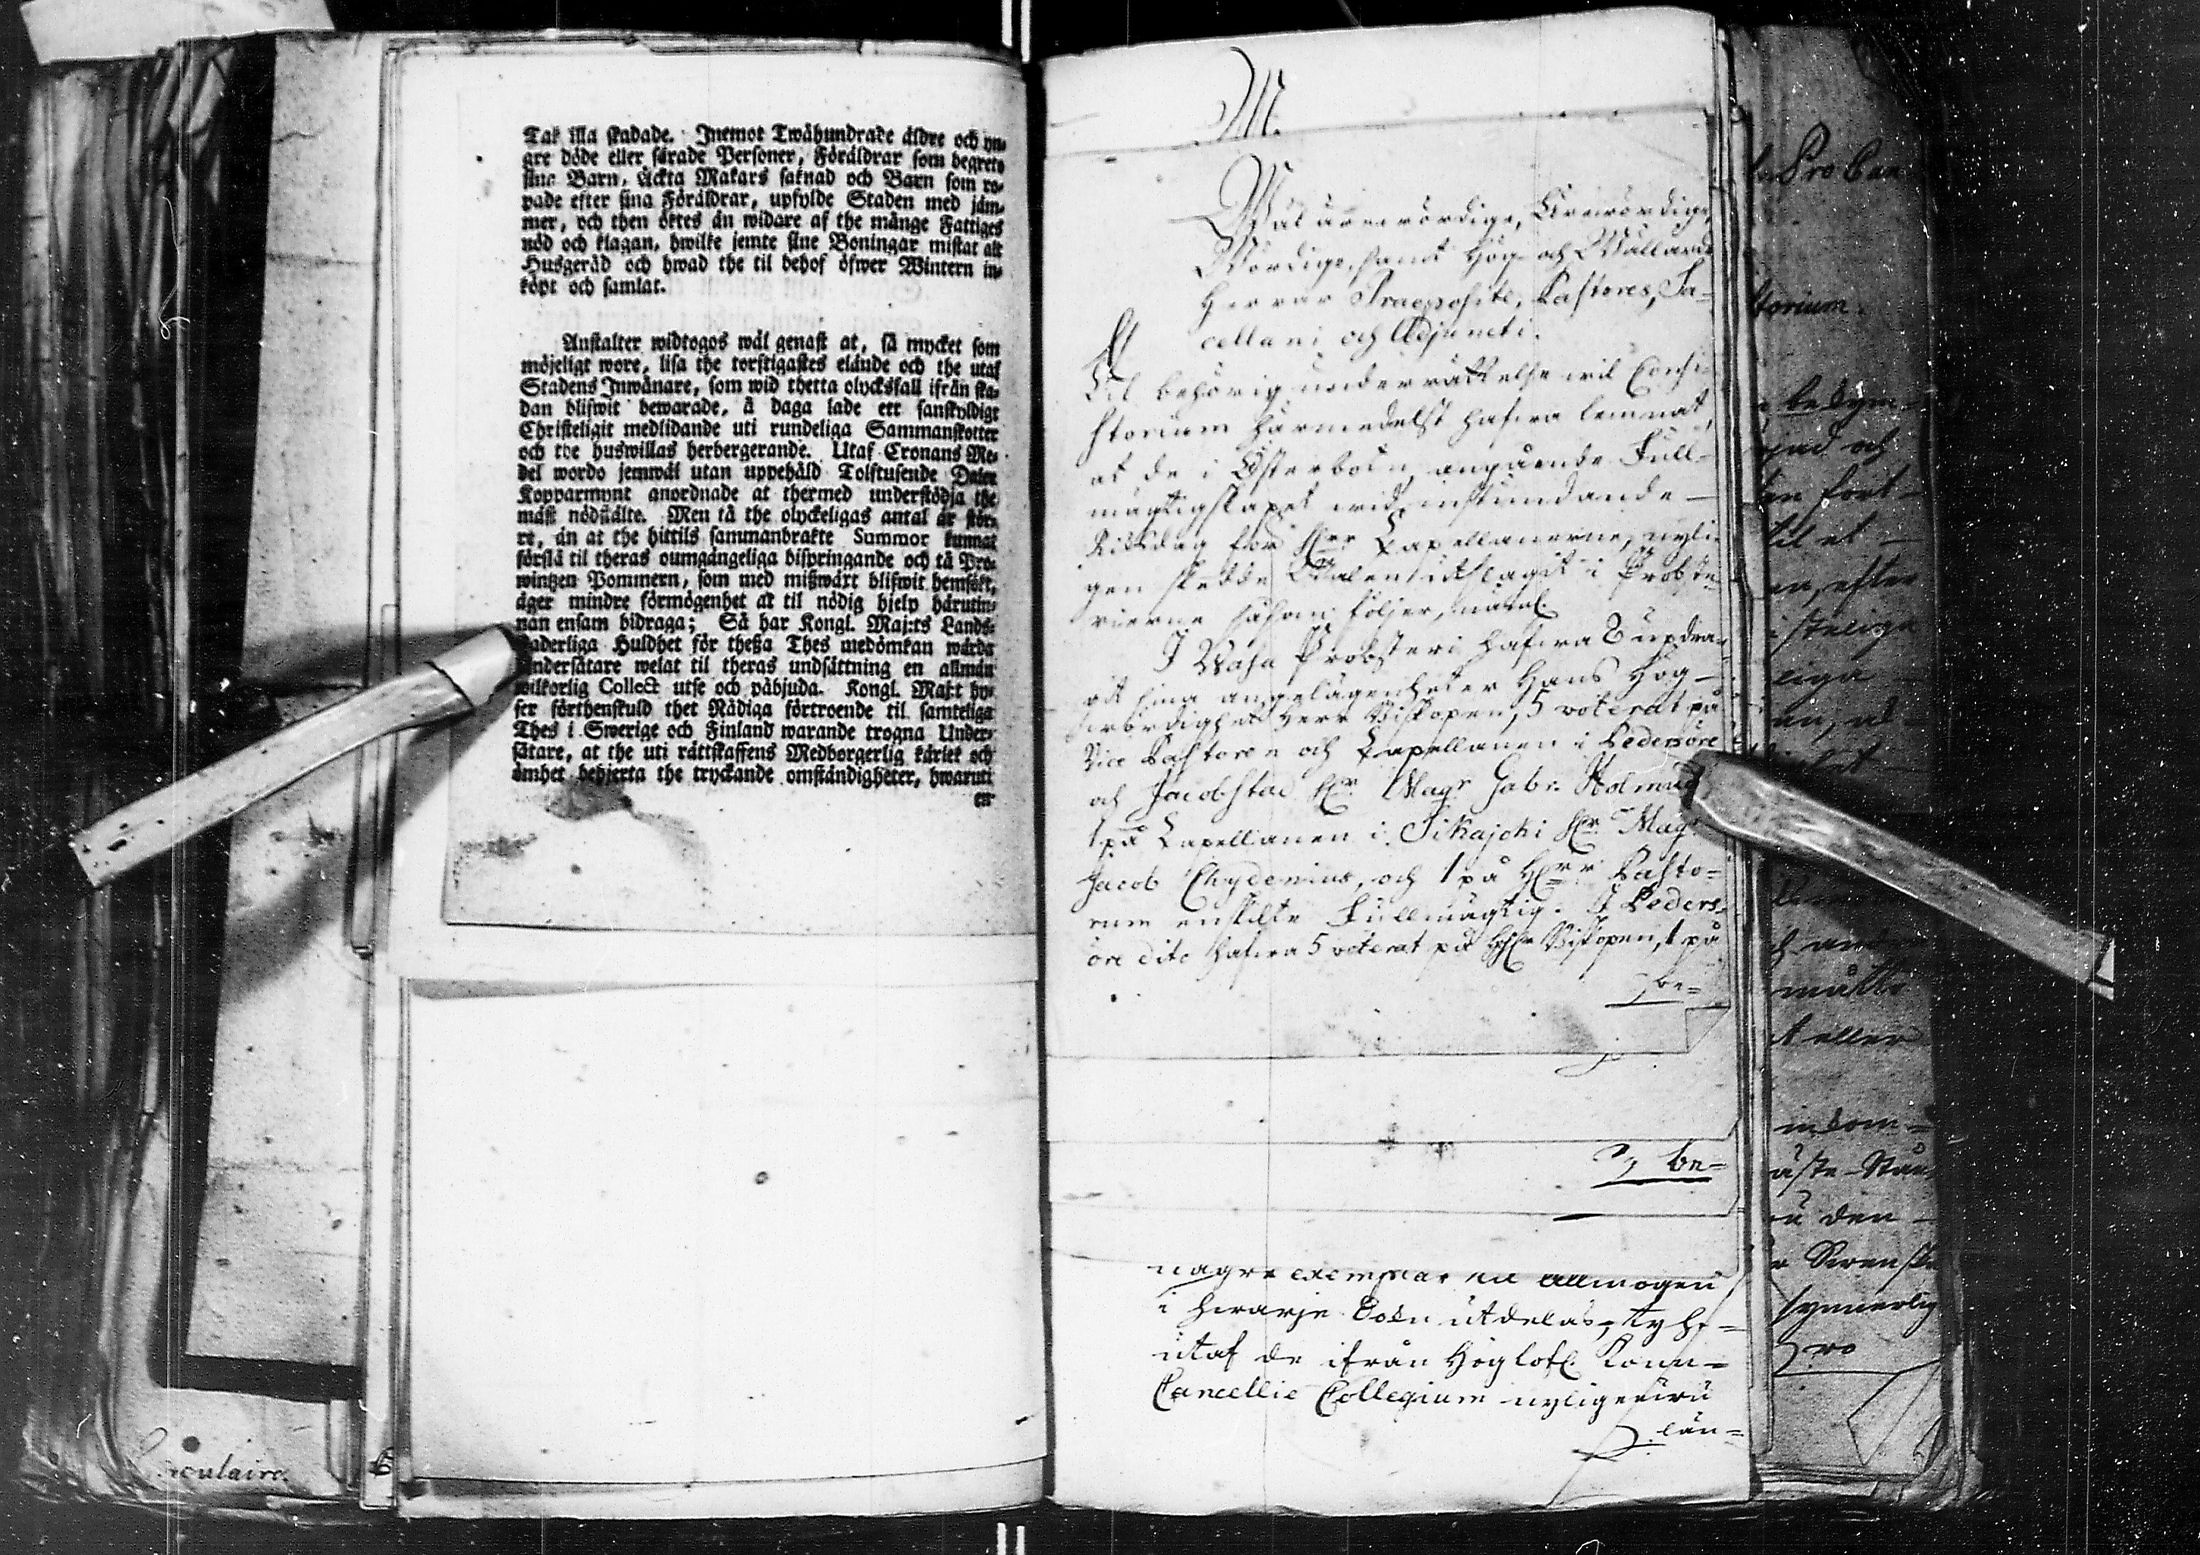 Tak illa skadade. Inemot Twåhundrade äldre och yn-
gre döde eller sårade Personer, Föräldrar som begreto
sina Barn, äckta Makars saknad och Barn som ro-
pade efter sina Föräldrar, upfylde Staden med jäm-
mer, och then öktes än widare af the månge Fattiges
nöd och klagan, hwilke jemte sine Boningar mistat alt
Husgeråd och hwad the til behof öfwer Wintern in-
köpt och samlat.
Anstalter widtogos wäl genast at, så mycket som
möjeligt wore, lisa the torftigastes elände och the utaf
Stadens Inwånare, som wid thetta olycksfall ifrån ska-
dan blifwit bewarade, å daga lade ett sanskyldigt
Christeligit medlidande uti rundeliga Sammanskotter
och the huswillas herbergerande. Utaf Cronans Me-
del wordo jemwäl utan uppehåld Tolftusende Daler
Kopparmynt anordnade at thermed understödja the
mäst nödstälte. Men tå the olyckeligas antal är stör-
re, än at the hittils sammanbrakte Summor kunnat
förslå til theras oumgängeliga bispringande och tå Pro-
wintzen Pommern, som med mißwäxt blifwit hemsökt,
äger mindre förmögenhet at til nödig hjelp härutin-
nan ensam bidraga; Så har Kongl. Maj:ts Lands-
faderliga Huldhet för theßa Thes medömkan wärda
Undersåtare welat til theras undsättning en allmän
wilkorlig Collect utse och påbjuda. Kongl. Maj:t hy-
ser förthenskuld thet Nådiga förtroende til samteliga
Thes i Swerige och Finland warande trogna Under-
såtare, at the uti rättskaffens Medborgerlig kärlek och
ömhet behjerta the tryckande omständigheter, hwaruti
en
M.
Wäl ärewördige, Ärewördige,
Wördige, samt Hög- och Wällärde
Herrar Praepositi, Pastores, Sa-
cellani och Adjuncti.
Til behörig underrättelse wil Consi-
storium härmedelst hafwa lemnat,
at de i Österbotn angående Full-
mägtigskapet wid instundande
Riksdag för Hrr Capellanerne, nyli-
gen skedde Walen utslagit i Probste-
rierne såsom följer, näml.
I Wasa Probsteri hafwa 8 updra-
git sina angelägenheter Hans Hög-
wördighet Herr Biskopen, 5 voterat på
Vice Pastoren och Capellanen i Pedersöre
och Jacobstad Hr. Magr Gabr. Holmud
1 på Capellanen i Sikajoki Hr. Mag.
Jacob Chydenius, och 1 på Hrr Pasto-
rum enskilte Fullmägtig. I Peders-
öre dito hafwa 5 voterat på HHr Biskopen, 1 på
be-
be-
några exemplar til Allmogen
i hwarje Sokn utdelas, ty he-
utaf de ifrån Höglofl. Konn-
Cancellie Collegium nyligen
län-
Pro Can
torium.
bekym-
och
fort-
til et
en, efter
istelige
liga
måtte
eller
inkom-
äste Stän
den
Swenska
synnerlig
ro
Circulaire.